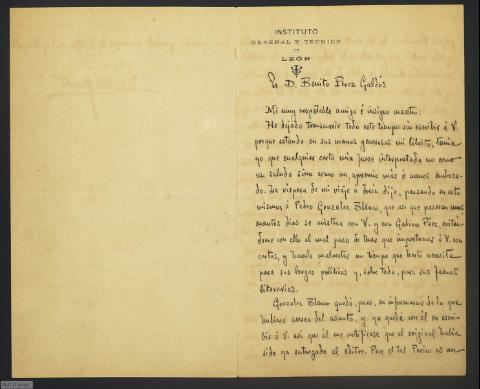 INSTITUTO
GENERAL Y TÉCNICO
DE
LEÓN
Sr. D. Benito Perez Galdós
Mi muy respetable amigo é insigne maestro:
He dejado transcurrir todo este tiempo sin escribir á V.
porque estando en sus manos generosas mi librito, temia
yo que cualquier carta mia fuese interpretada no como
un saludo sino como un apremio más ó menos
La vispera de mi viaje á Leon dije, pensando en esto
mismo, á Pedro Gonzalez Blanco, que asi que pasaran unos
cuantos dias se avistara con V. y con Gabino Páez, evitán-
dome con ello el mal paso de tener que importunar á V. con
cartas, y hacerle malgastar un tiempo que harto necesita
para sus bregas politicas y, sobre todo, para sus faenas
literarias.
Gonzalez Blanco quedó, pues, en informarme de lo que
hubiera acerca del asunto, y yo quedé con él en escri-
bir á V. asi que él me notificase que el original habia
sido ya entregado al editor. Pero el tal Perico es un